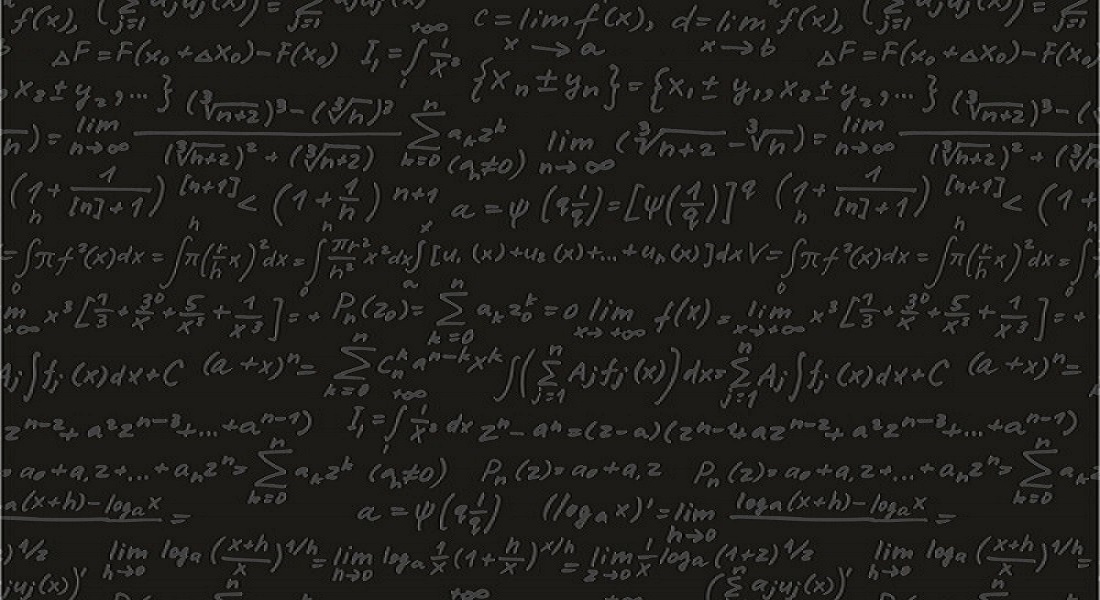 f(x), (∑ j=1 ajuj(x)) = ∑ j=1 ajuj(x) c = lim x→a f(x), d = lim x→b f(x), (∑ j=1 ajuj(x)) = ∑ j=1
ΔF = F(x₀+Δx₀)-F(x₀) I₁ = ∫₁^+∞ 1/x² ΔF = F(x₀+Δx₀)-F(x₀)
x₂ ± y₂, ... } {xₙ ± yₙ} = {x₁ ± y₁, x₂ ± y₂, ... }
n) = lim n→∞ ((∛n+2)³ - (∛n)³)/((∛n+2)² + (∛n+2)) ∑ k=0 n aₖzᵏ (aₙ≠0) lim n→∞ (∛n+2 - ∛n) = lim n→∞ ((∛n+2)³ - (
(1 + 1/([n]+1))ₙ [n+1] < (1 + 1/n) n+1 a = ψ(q 1/q) = [ψ(1/q)]^q (1 + 1/([n]+1))ₙ [n+1] < (1 +
= ∫₀ πf²(x)dx = ∫₀^h π(r/h x)²dx = ∫₀^h πr²/h² x²dx ∫ₐˣ [u₁(x)+u₂(x)+...+uₙ(x)]dx V = ∫₀ πf²(x)dx = ∫₀^h π(r/h x)²dx =
x³[1/3 + 30/x + 5/x³ + 1/x³] = + Pₙ(z₀) = ∑ k=0 n aₖz₀ᵏ = 0 lim x→+∞ f(x) = lim x→+∞ x³[1/3 + 30/x + 5/x³ + 1/x³] = +
Aj∫fj(x)dx+C (a+x)ⁿ = ∑ k=0 n Cₙᵏaⁿ⁻ᵏxᵏ ∫(∑ j=1 n Ajfj(x))dx = ∑ j=1 n Aj∫fj(x)dx+C (a+x)ⁿ =
zⁿ⁻²+ a²zⁿ⁻³+...+aⁿ⁻¹) I₁ = ∫₁^+∞ 1/x² dx zⁿ - aⁿ = (z-a)(zⁿ⁻¹+ azⁿ⁻²+ a²zⁿ⁻³+...+aⁿ⁻¹)
= a₀+a₁z+...+aₙzⁿ = ∑ k=0 n aₖzᵏ (aₙ≠0) Pₙ(z) = a₀+a₁z Pₙ(z) = a₀+a₁z+...+aₙzⁿ = ∑ k=0 n
a(x+h)-logₐx = a = ψ(q 1/q) (logₐx)' = lim h→0 logₐ(x+h)-logₐx =
)^1/2 lim h→0 logₐ((x+h)/x)^1/h = lim h→0 logₐ 1/x (1 + h/x)^x/h = lim z→0 1/x logₐ(1+z)^1/2 lim h→0 logₐ((x+h)/x)^1/h =
juj(x))' n +∞ (∑ ajuj(x))' n